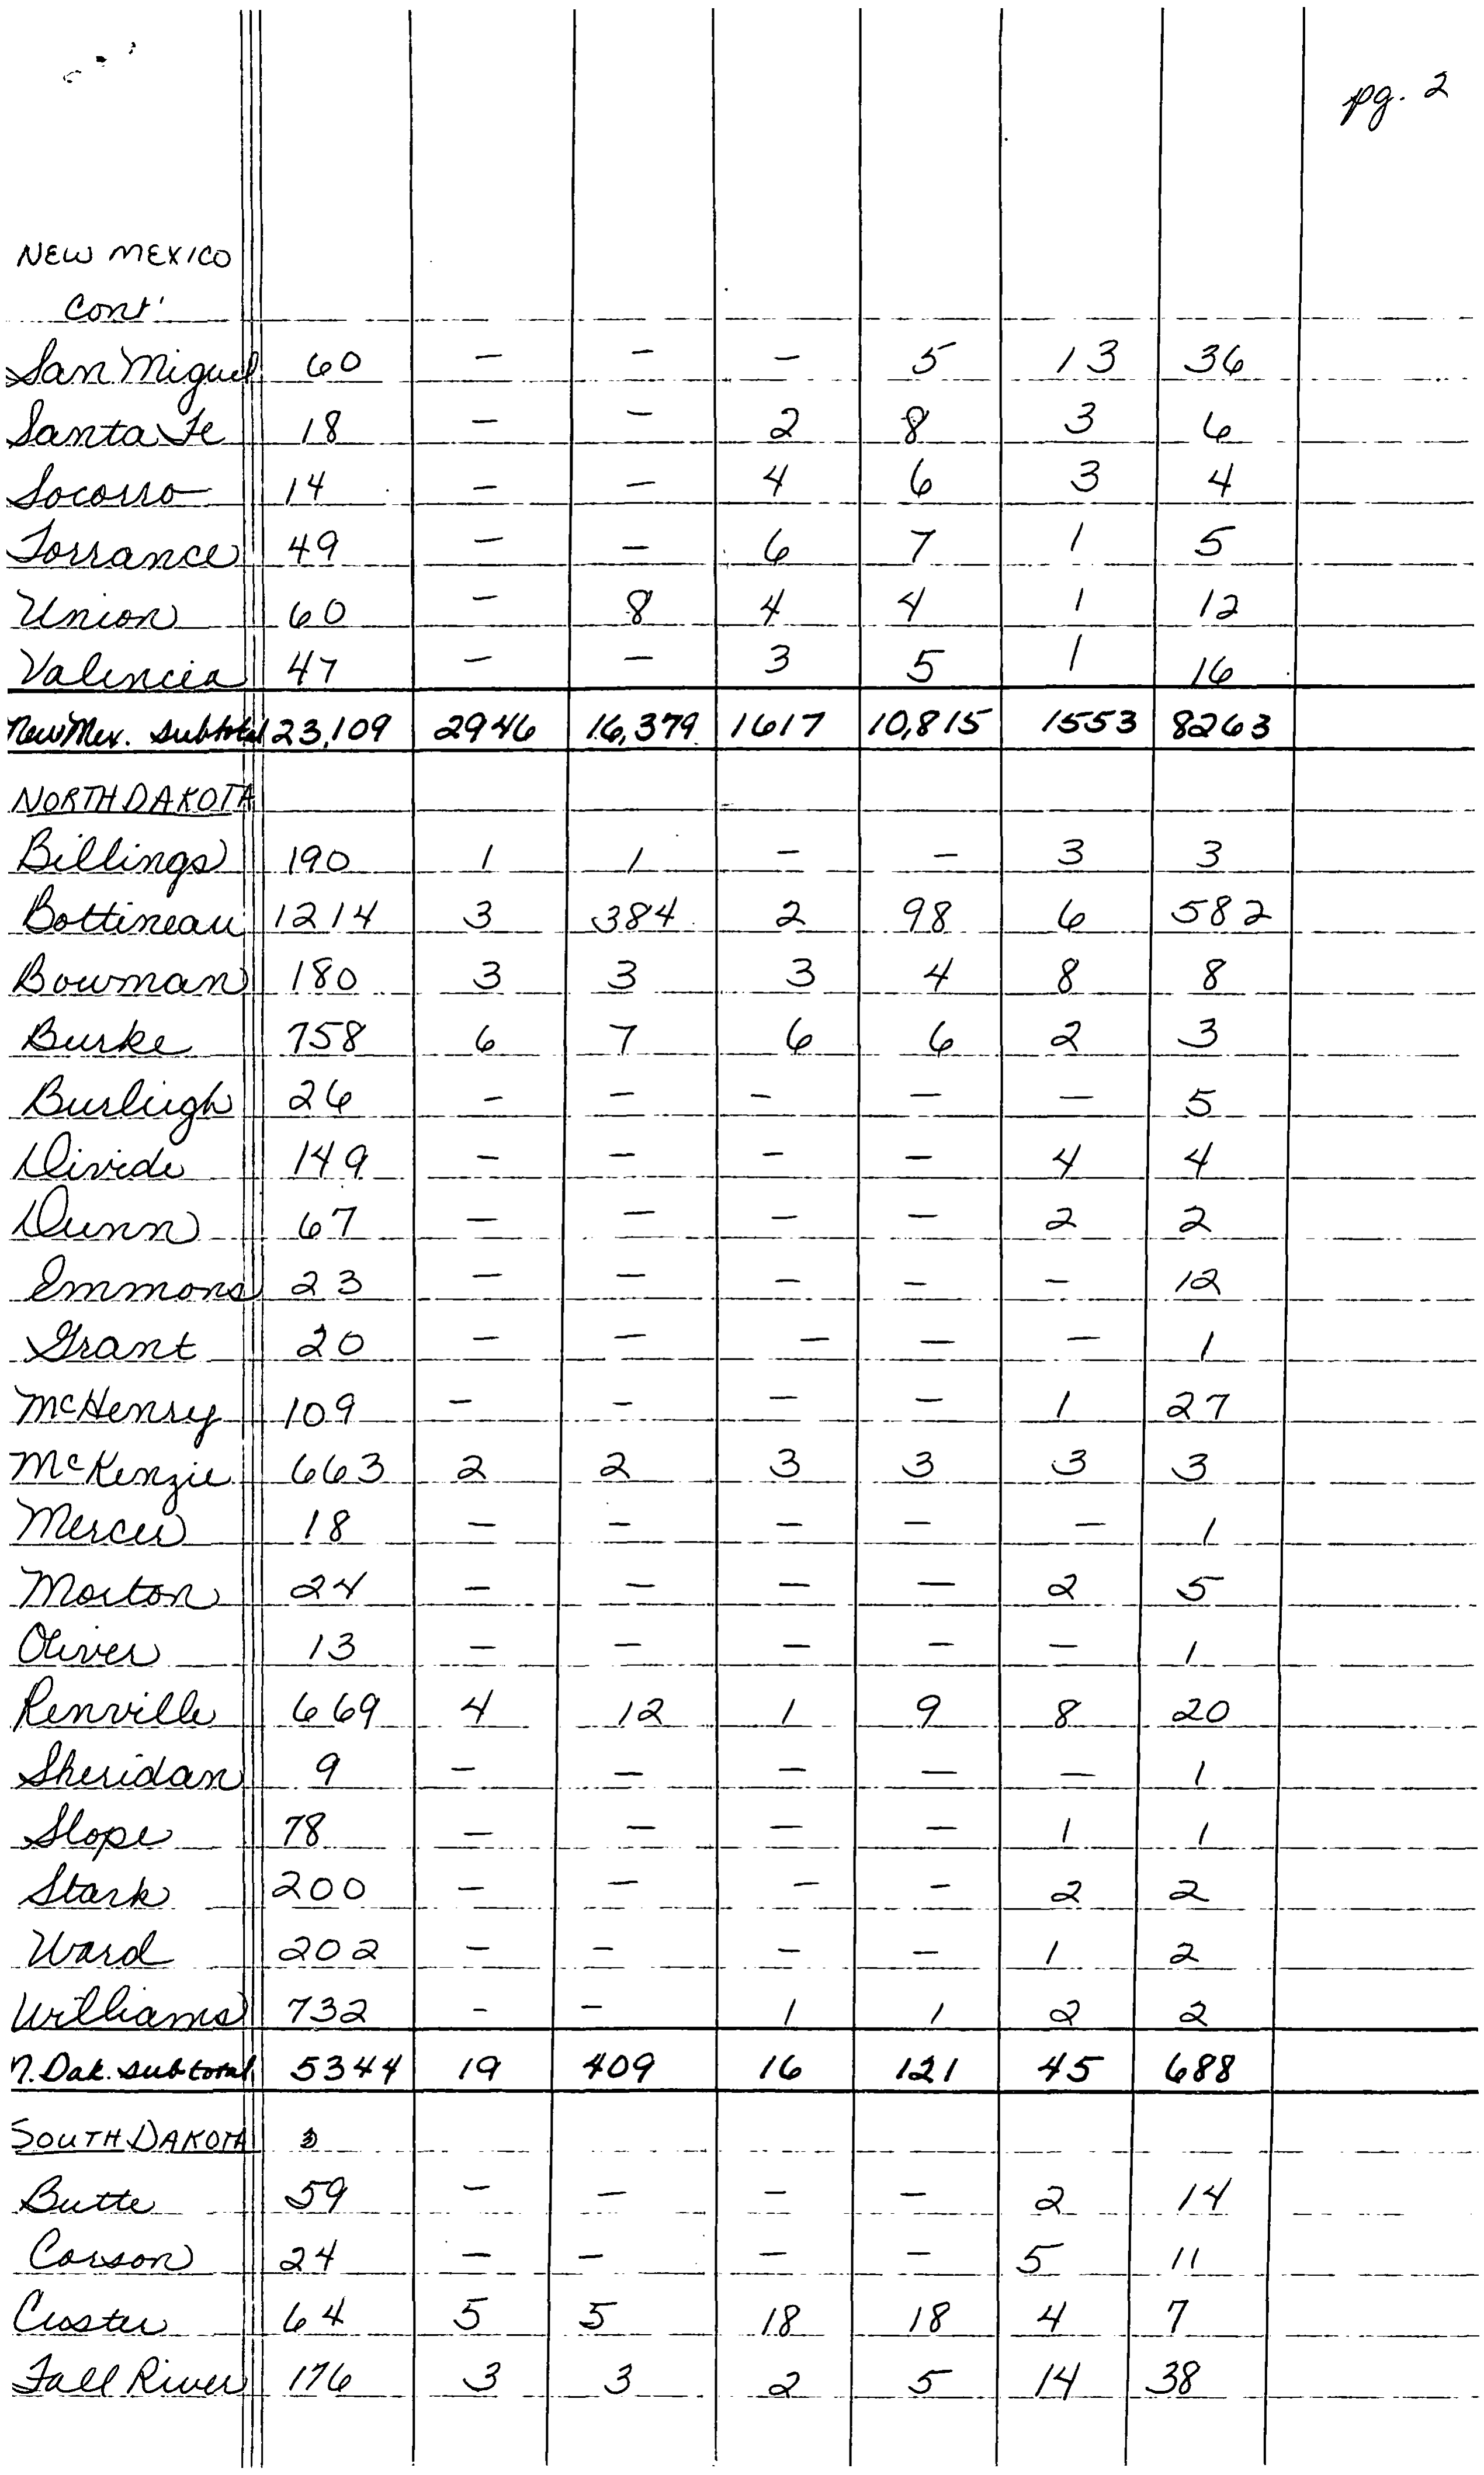 pg. 2
NEW MEXICO
Cont'
San Miguel 60 – – – 5 13 36
Santa Fe 18 – – 2 8 3 6
Socorro 14 – – 4 6 3 4
Torrance 49 – – 6 7 1 5
Union 60 – 8 4 4 1 12
Valencia 47 – – 3 5 1 16
New Mex. subtotal 23,109 2946 16,379 1617 10,815 1553 8263
NORTH DAKOTA
Billings 190 1 1 – – 3 3
Bottineau 1214 3 384 2 98 6 582
Bowman 180 3 3 3 4 8 8
Burke 758 6 7 6 6 2 3
Burleigh 26 – – – – – 5
Divide 149 – – – – 4 4
Dunn 67 – – – – 2 2
Emmons 23 – – – – – 12
Grant 20 – – – – – 1
McHenry 109 – – – – 1 27
McKenzie 663 2 2 3 3 3 3
Mercer 18 – – – – – 1
Morton 24 – – – – 2 5
Oliver 13 – – – – – 1
Renville 669 4 12 1 9 8 20
Sheridan 9 – – – – – 1
Slope 78 – – – – 1 1
Stark 200 – – – – 2 2
Ward 202 – – – – 1 2
Williams 732 – – 1 1 2 2
N. Dak. subtotal 5344 19 409 16 121 45 688
SOUTH DAKOTA
Butte 59 – – – – 2 14
Corson 24 – – – – 5 11
Custer 64 5 5 18 18 4 7
Fall River 176 3 3 2 5 14 38